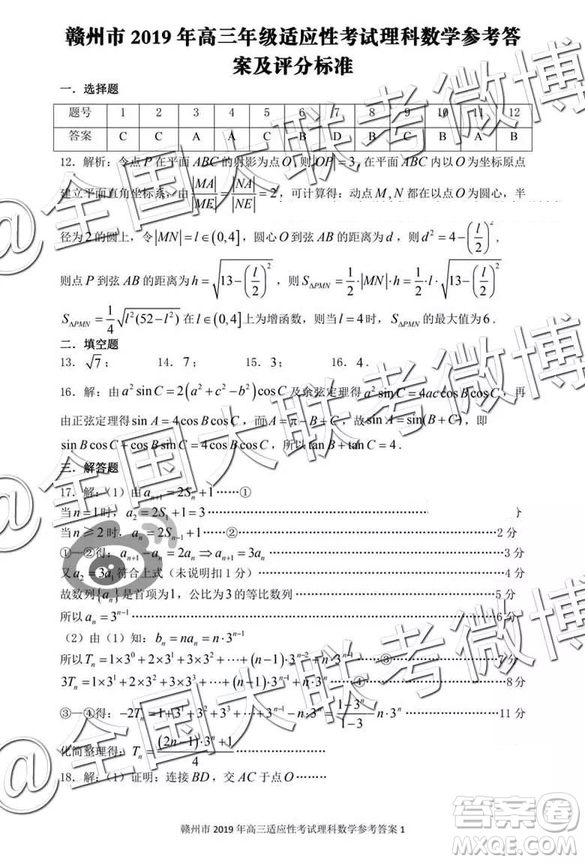 赣州市 2019 年高三年级适应性考试理科数学参考答
案及评分标准
一．选择题
题号 1 2 3 4 5 6 7 8 9 10 11 12
答案 C C A A C B D B C A B
12. 解析：令点 P 在平面 ABC 的射影为点 O，则 OP=3，在平面 ABC 内以 O 为坐标原点
建立平面直角坐标系，由 |MA|/|ME| = |NA|/|NE| = 2，可计算得：动点 M、N 都在以点 O 为圆心，半
径为 2 的圆上，令 |MN| = l ∈ (0,4]，圆心 O 到弦 AB 的距离为 d，则 d² = 4 − (l/2)²，
则点 P 到弦 AB 的距离为 h = √(13 − (l/2)²)，则 S△PMN = 1/2·|MN|·h = 1/2·l·√(13 − (l/2)²)
S△PMN = 1/4 √(l²(52 − l²)) 在 l ∈ (0,4] 上为增函数，则当 l = 4 时，S△PMN 的最大值为 6．
二．填空题
13. √7； 14. 7； 15. 3； 16. 4．
16. 解：由 a² sin C = 2(a² + c² − b²) cos C 及余弦定理得 a² sin C = 4ac cos B cos C，再
由正弦定理得 sin A = 4 cos B cos C，而 A = π − B − C，故 sin(B + C)，即
sin B cos C + cos B sin C = 4 cos B cos C，所以 tan B + tan C = 4．
三．解答题
17. 解：（1）由 aₙ₊₁ = 2Sₙ + 1 ……①
当 n = 1 时，a₂ = 2S₁ + 1 = 3
当 n ≥ 2 时，aₙ = 2Sₙ₋₁ + 1 ……② 2 分
①—②得：aₙ₊₁ − aₙ = 2aₙ ⇒ aₙ₊₁ = 3aₙ 3 分
又 a₂ = 3a₁ 符合上式（未说明扣 1 分） 4 分
故数列 {aₙ} 是首项为 1，公比为 3 的等比数列 5 分
所以 aₙ = 3ⁿ⁻¹ 6 分
（2）由（1）知：bₙ = naₙ = n·3ⁿ⁻¹
所以 Tₙ = 1×3⁰ + 2×3¹ + 3×3² + ⋯ + (n−1)·3ⁿ⁻² + n·3ⁿ⁻¹
3Tₙ = 1×3¹ + 2×3² + 3×3³ + ⋯ + (n−1)·3ⁿ⁻¹ + n·3ⁿ
③—④得：−2Tₙ = 1 + 3¹ + 3² + 3³ + ⋯ + 3ⁿ⁻¹ − n·3ⁿ = (1−3ⁿ)/(1−3) − n·3ⁿ 11 分
化简整理得：Tₙ = ((2n−1)·3ⁿ + 1)/4
18. 解：（1）证明：连接 BD，交 AC 于点 O……
赣州市 2019 年高三适应性考试理科数学参考答案 1
@全国大联考微博
@全国大联考微博
答案圈
MXQE.COM